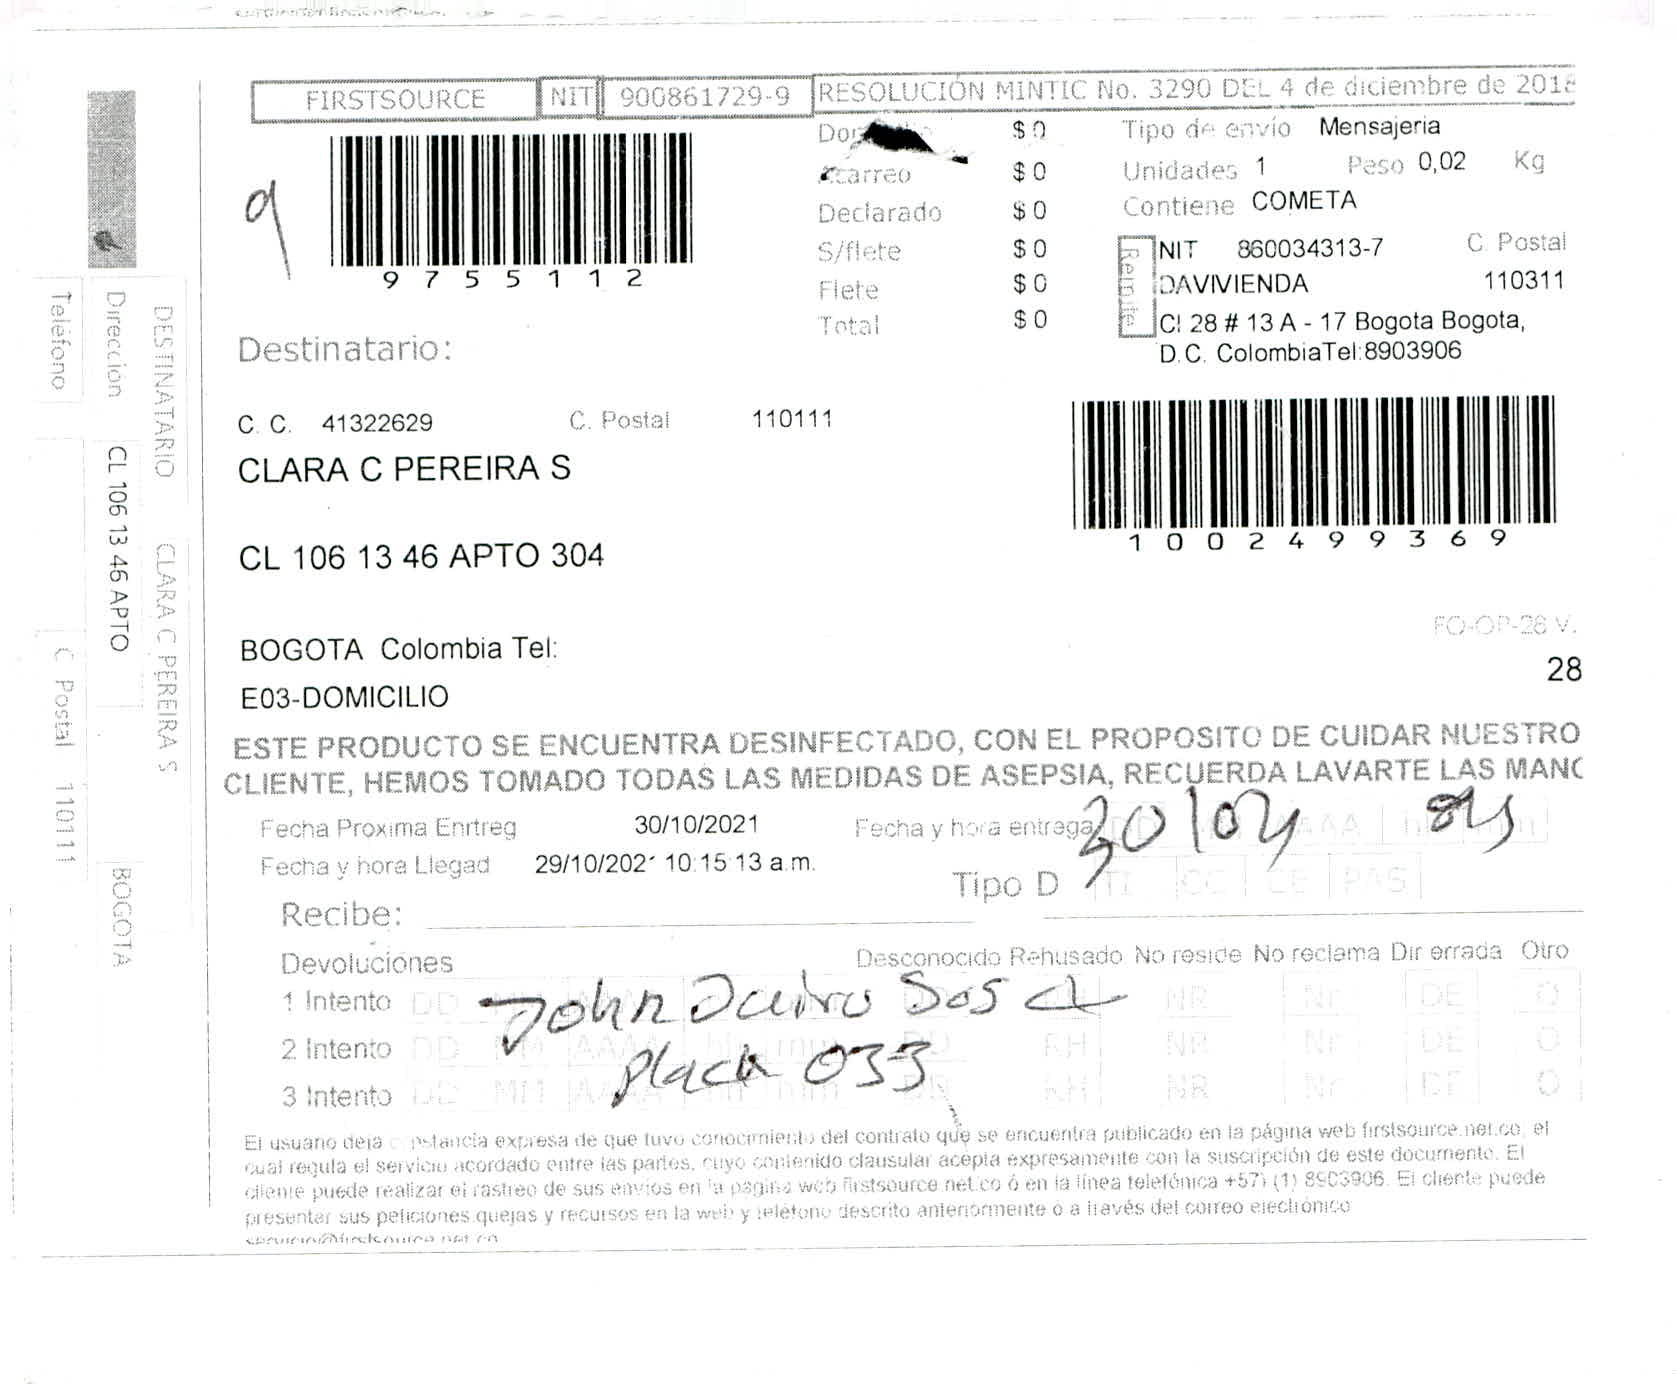 FIRSTSOURCE NIT 900861729-9 RESOLUCIÓN MINTIC No. 3290 DEL 4 de diciembre de 2018
9
9 7 5 5 1 1 2
$ 0
Acarreo $ 0
Declarado $ 0
S/flete $ 0
Flete $ 0
Total $ 0
Tipo de envío Mensajeria
Unidades 1 Peso 0,02 Kg
Contiene COMETA
Remite
NIT 860034313-7 C. Postal
DAVIVIENDA 110311
Cl 28 # 13 A - 17 Bogota Bogota,
D.C. ColombiaTel:8903906
Destinatario:
C. C. 41322629 C. Postal 110111
CLARA C PEREIRA S
CL 106 13 46 APTO 304
BOGOTA Colombia Tel:
E03-DOMICILIO
1 0 0 2 4 9 9 3 6 9
FO-OP-26 V.
28
ESTE PRODUCTO SE ENCUENTRA DESINFECTADO, CON EL PROPOSITO DE CUIDAR NUESTRO
CLIENTE, HEMOS TOMADO TODAS LAS MEDIDAS DE ASEPSIA, RECUERDA LAVARTE LAS MANO
Fecha Proxima Enrtreg 30/10/2021 Fecha y hora entrega
Fecha y hora Llegad 29/10/2021 10:15:13 a.m.
Tipo D TI CC CE PAS
Recibe:
Devoluciones Desconocido Rehusado No reside No reclama Dir errada Otro
1 Intento DD MM NR Nr DE O
2 Intento DD MM AAAA hh mm DD RH NR Nr DE O
3 Intento DD MM AAAA hh mm DD RH NR Nr DE O
John Jairo Sosa
Placa 033
El usuario deja constancia expresa de que tuvo conocimiento del contrato que se encuentra publicado en la página web firstsource.net.co, el
cual regula el servicio acordado entre las partes, cuyo contenido clausular acepta expresamente con la suscripción de este documento. El
cliente puede realizar el rastreo de sus envios en la página web firstsource.net.co ó en la línea telefónica +57) (1) 8903906. El cliente puede
presentar sus peticiones quejas y recursos en la web y teléfono descrito anteriormente o a través del correo electrónico
servicio@firstsource.net.co
DESTINATARIO CLARA C PEREIRA S
Direccion CL 106 13 46 APTO BOGOTA
Teléfono C Postal 110111